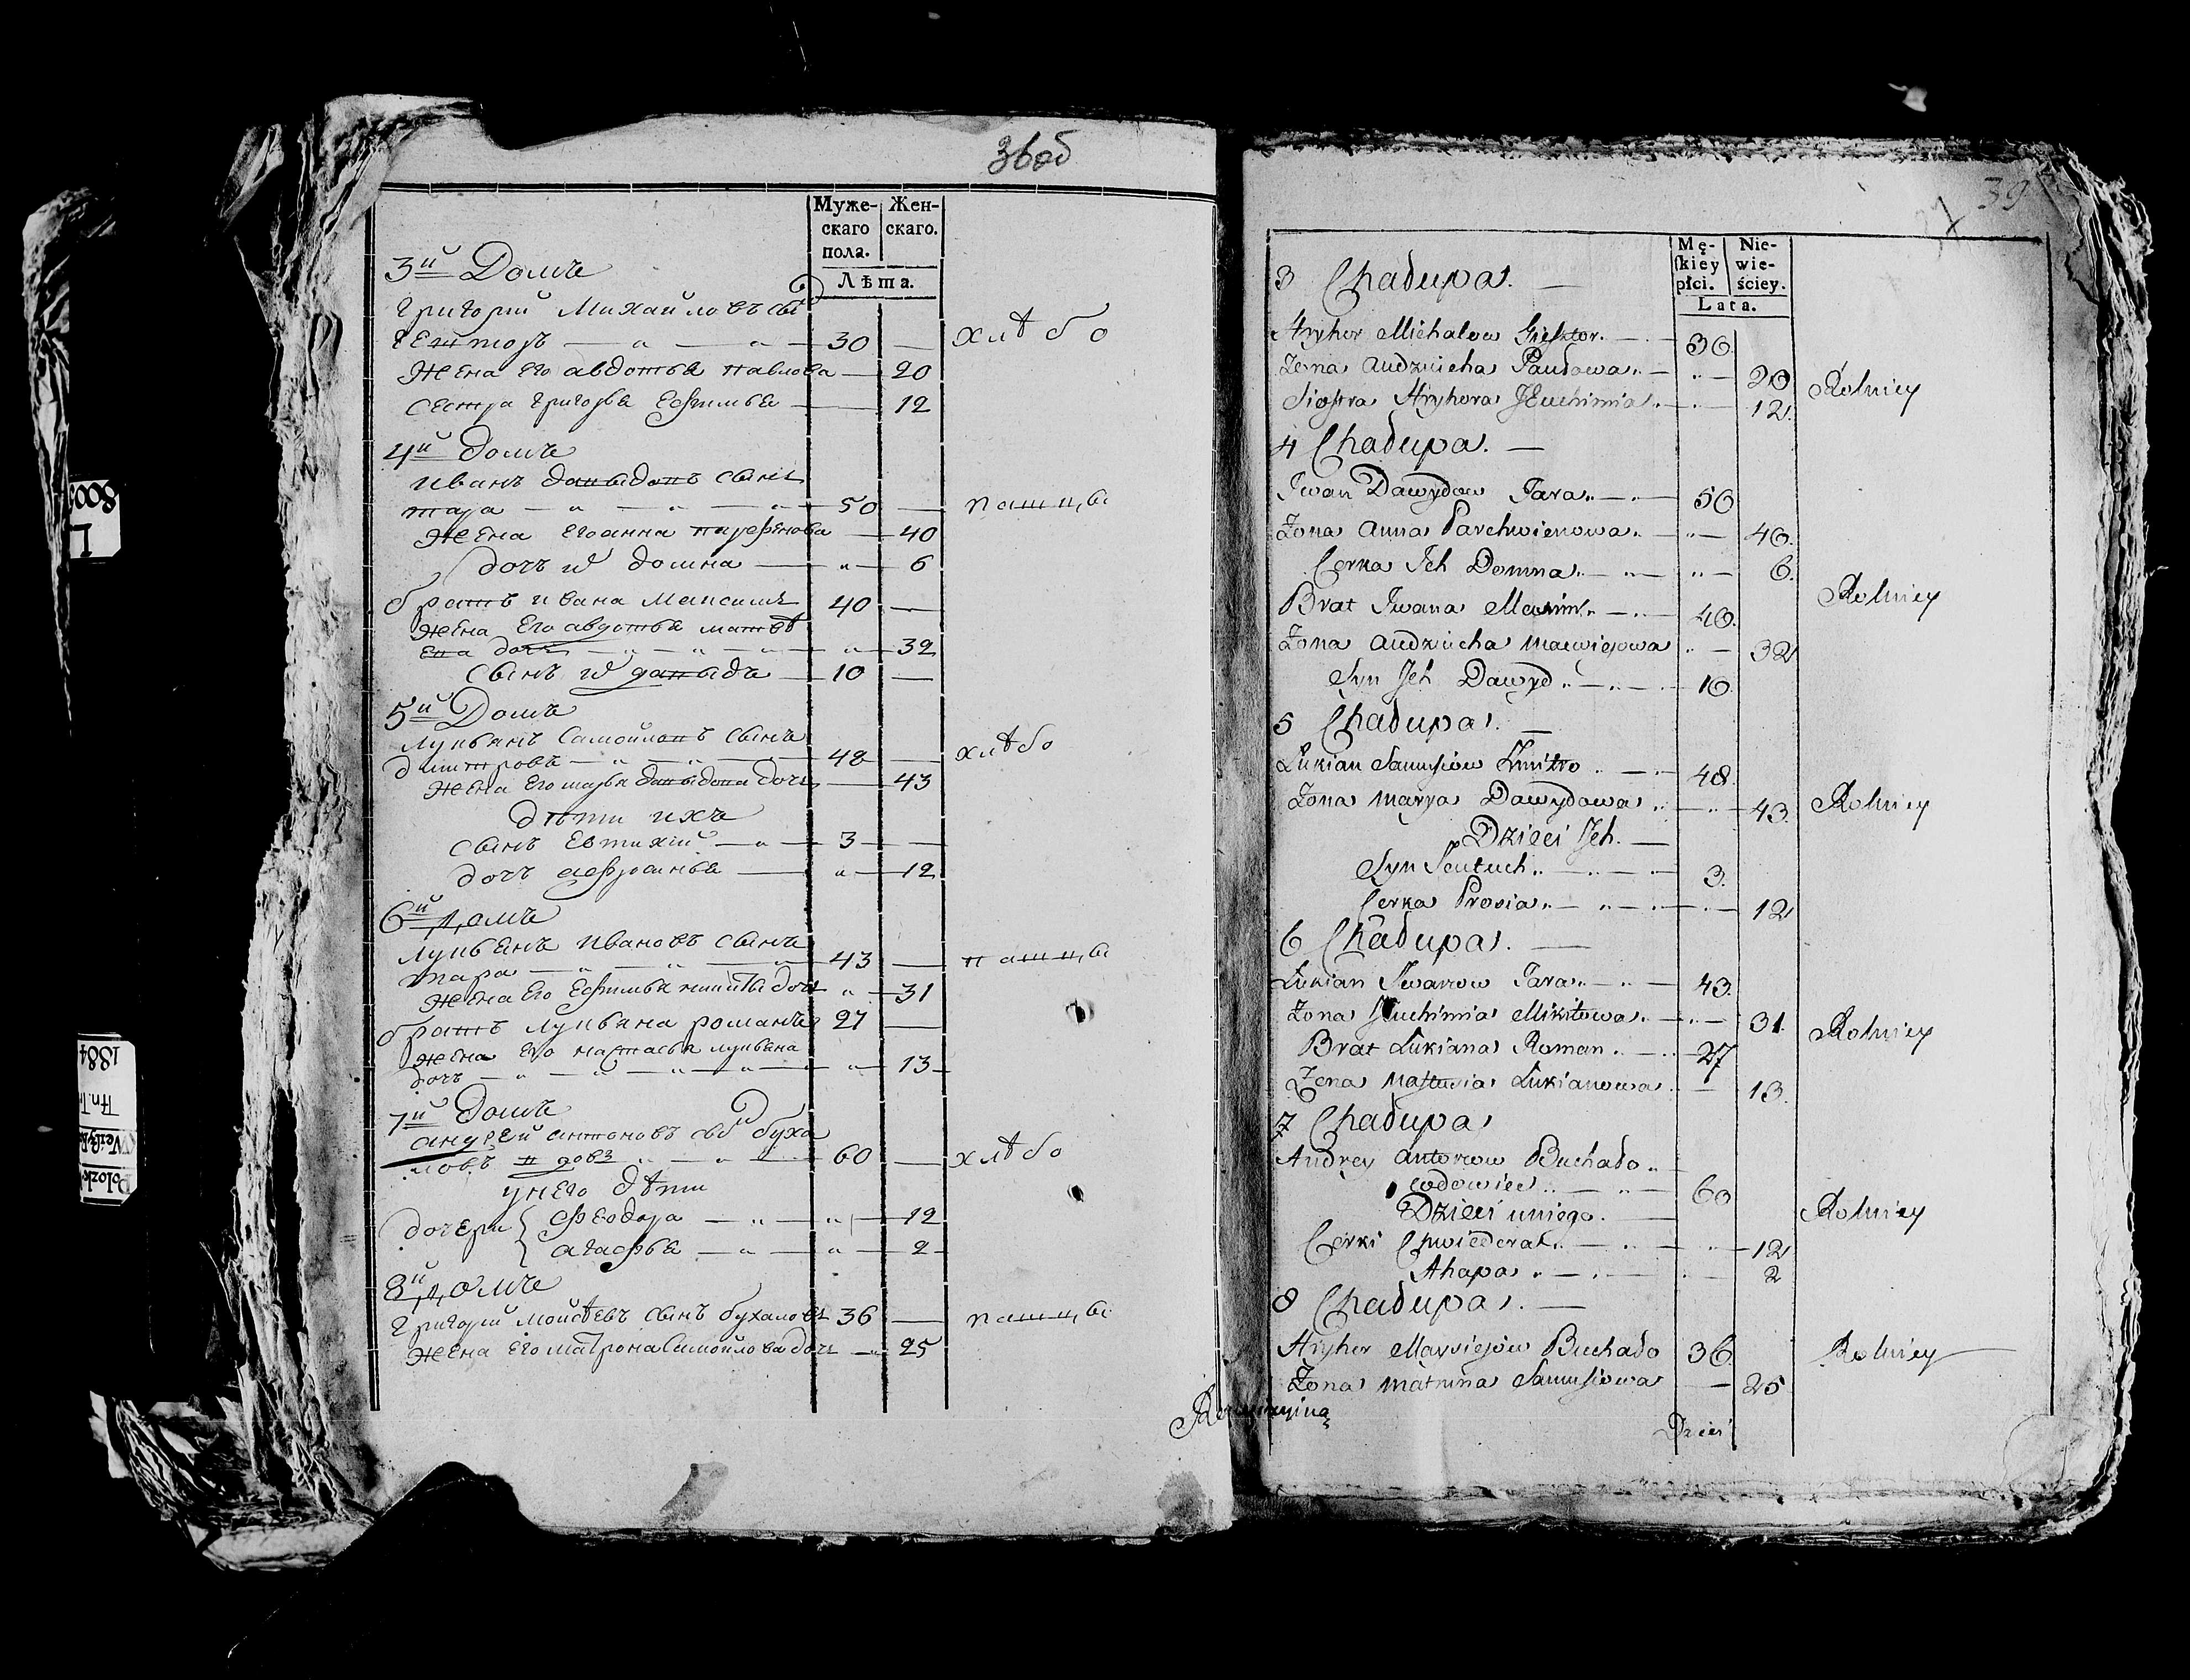 36об
Муже-
скаго
пола.
Жен-
скаго.
Лѣта.
3й Домъ
Григорий Михайловъ сы
30
хлѣбо
жена его авдотья павлова — 20
сестра григорья Ефимья — 12
4й домъ
иванъ давыдовъ сынъ
тара — 50 — пашцы
жена его анна парфенова — 40
дочь их домна — 6
братъ ивана Максимъ 40 —
жена его авдотья матвѣ
ева дочь — 32
сынъ их давыдъ — 10 —
5й Домъ
лукьянъ Самойловъ сынъ
дмитровъ — 48 — хлѣбо
жена его марья давыдова дочь — 43
дѣти ихъ
сынъ Евтихій — 3 —
дочь афросинья — 12
6й домъ
лукьянъ ивановъ сынъ
тара — 43 — пашцы
жена его Ефимья никиты дочь — 31
братъ лукьяна романъ 27 —
жена его настасья лукьяна
дочь — 13
7й домъ
андрей антоновъ сы буха
ловъ вдовз — 60 — хлѣбо
у него дѣти
дочери феодора — 12
агафья — 2
8й домъ
григорий моисѣевъ сынъ бухаловъ 36 — пашцы
жена его матрона самойлова дочь — 25
39
37
Mę-
skiey
płci.
Nie-
wie-
ściey.
Lata.
3 Chałupa. —
Hryhor Michałow 30
Zona Audziucha Pawłowa — 20 Rolniey
Siostra Hryhora JEuchimia — 12
4 Chałupa. —
Jwan Dawydow Tara — 50
Zona Anna Parchwienowa — 40
Corka Jch Domna — 6
Rolniey
Brat Jwana Maxim — 40
Zona Audziucha Maćwiejowa — 32
Syn Jch Dawyd — 10
5 Chałupa. —
Łukian Samusiow Zmitro — 48
Zona Marya Dawydowa — 43 Rolniey
Dzieci Jch. —
Syn Jeutuch — 3
Corka Prosia — 12
6 Chałupa. —
Łukian Jwanow Tara — 43
Zona JEuchimia Mikitowa — 31 Rolniey
Brat Łukiana Roman — 27
Zona Nastasia Łukianowa — 13
7 Chałupa
Andrey Antonow Buchało
wdowiec — 60
Dzieci u niego. — Rolniey
Corki Chwiedora — 12
Ahapa — 2
8 Chałupa. —
Hryhor Maysiejow Buchało 36 Rolniey
Zona Matruna Samusiowa — 25
Dzieci